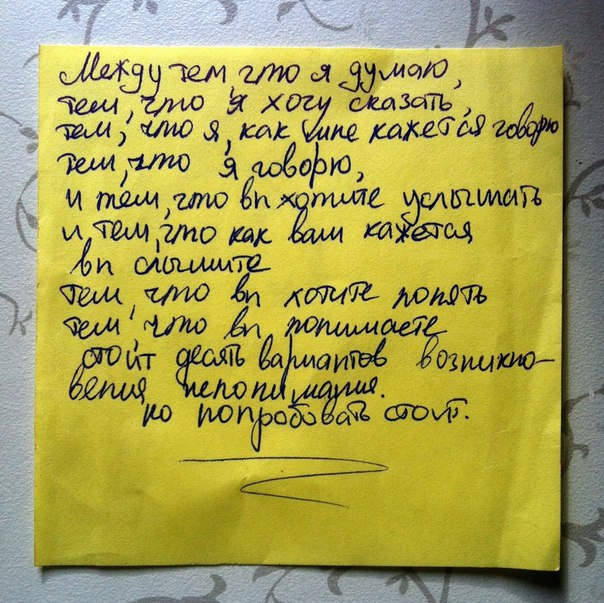 Между тем что я думаю,
тем, что я хочу сказать,
тем, что я, как мне кажется говорю
тем, что я говорю,
и тем, что вы хотите услышать
и тем, что как вам кажется
вы слышите
тем, что вы хотите понять
тем что вы понимаете
стоит десять вариантов возникно-
вения непонимания.
но попробовать стоит.